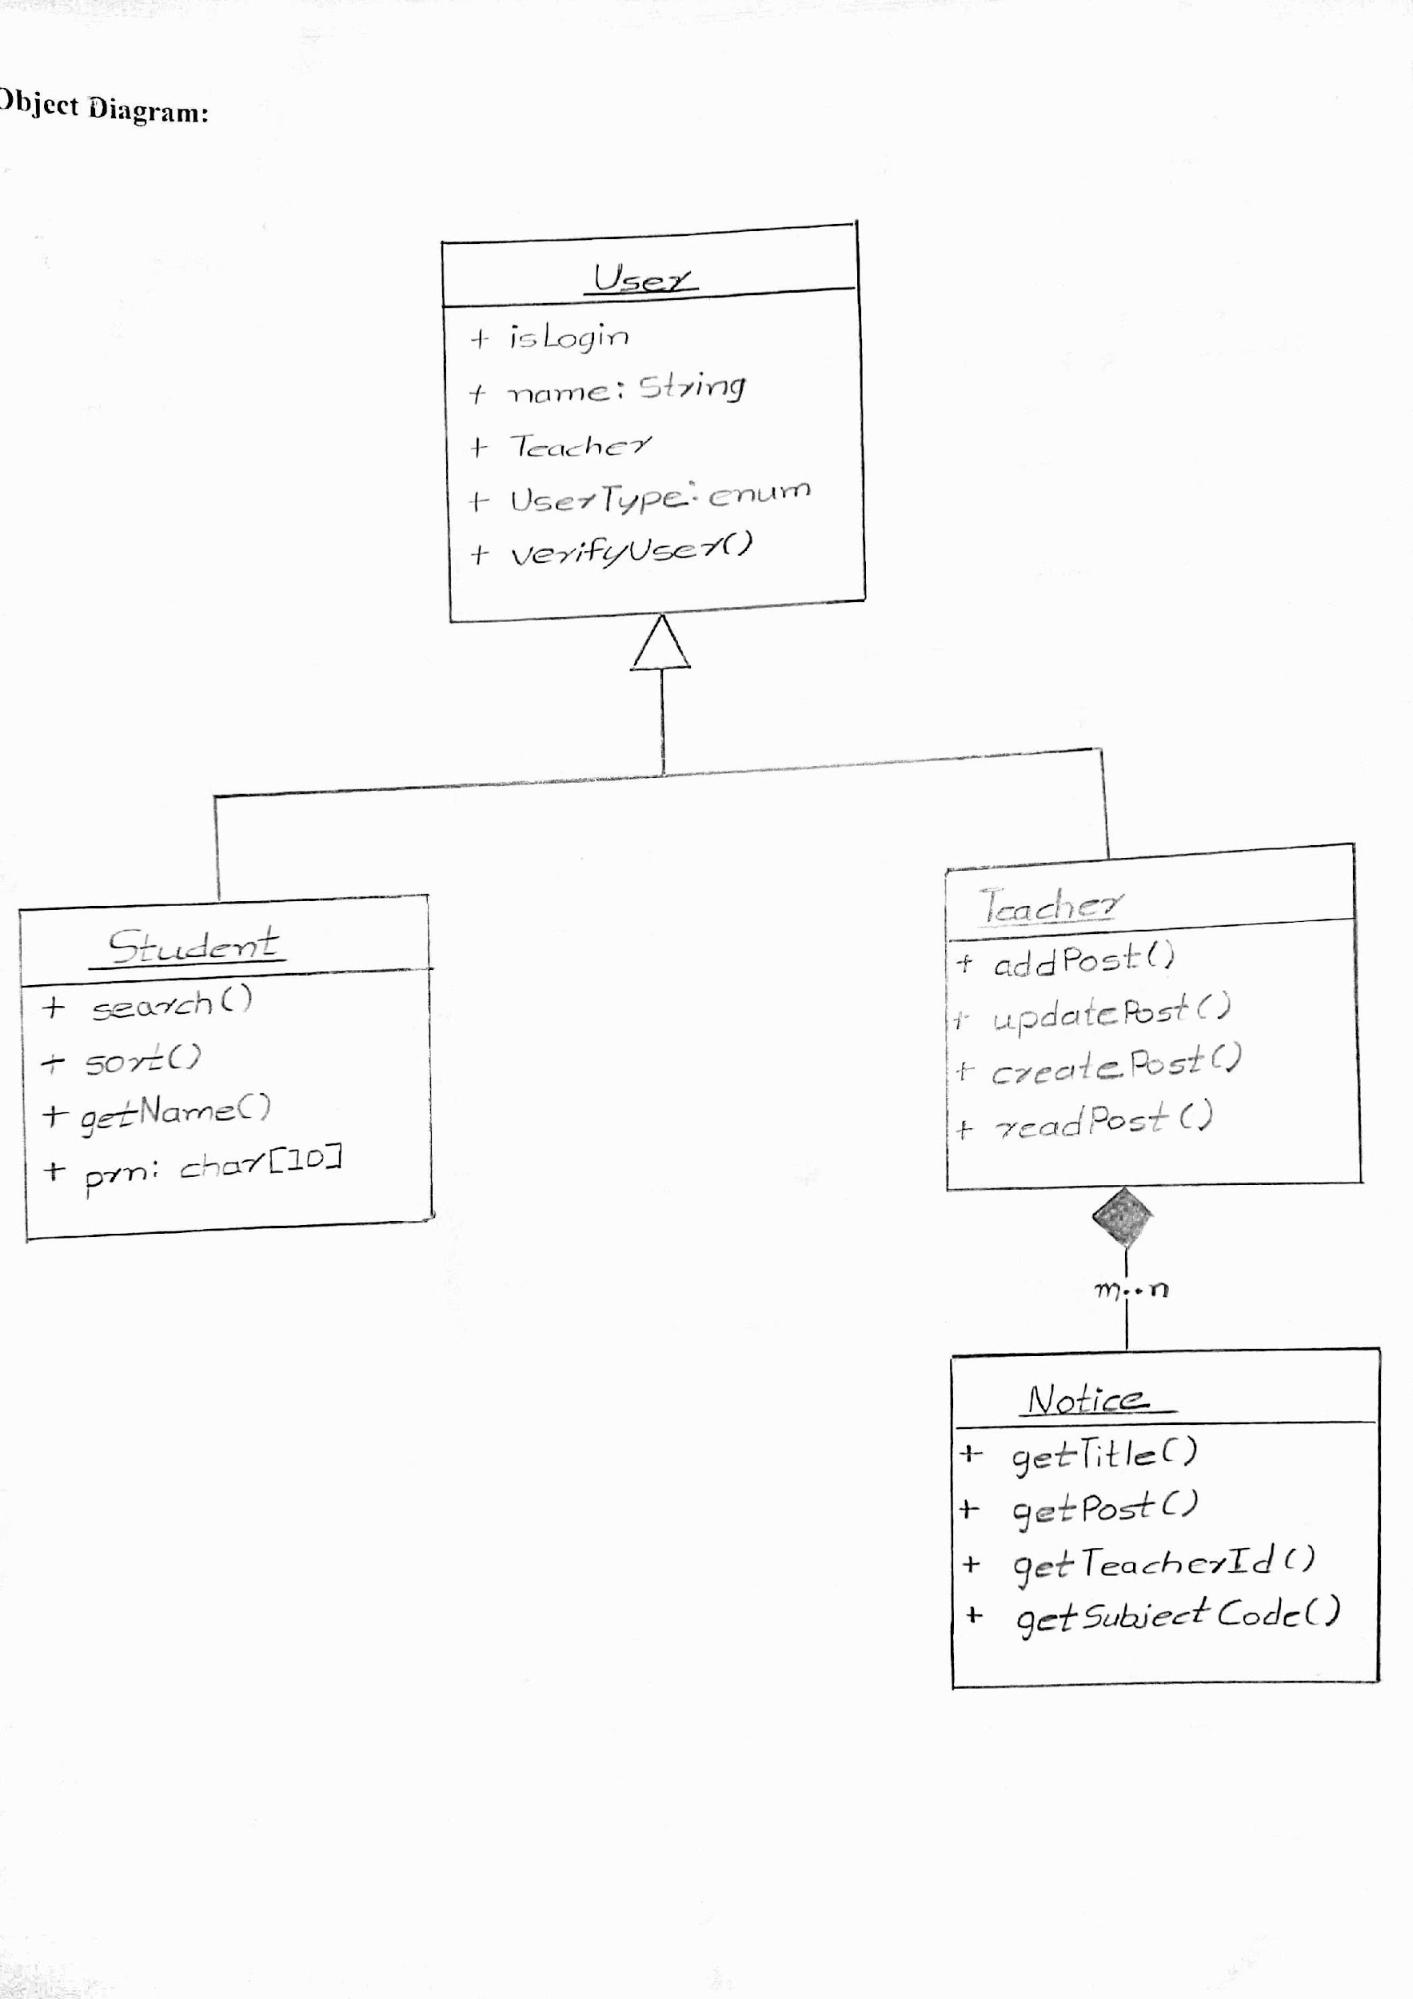 Object Diagram:
User
+ isLogin
+ name: String
+ Teacher
+ UserType: enum
+ verifyUser()
Student
+ search()
+ sort()
+ getName()
+ prn: char[10]
Teacher
+ addPost()
+ updatePost()
+ createPost()
+ readPost()
m..n
Notice
+ getTitle()
+ getPost()
+ getTeacherId()
+ getSubjectCode()